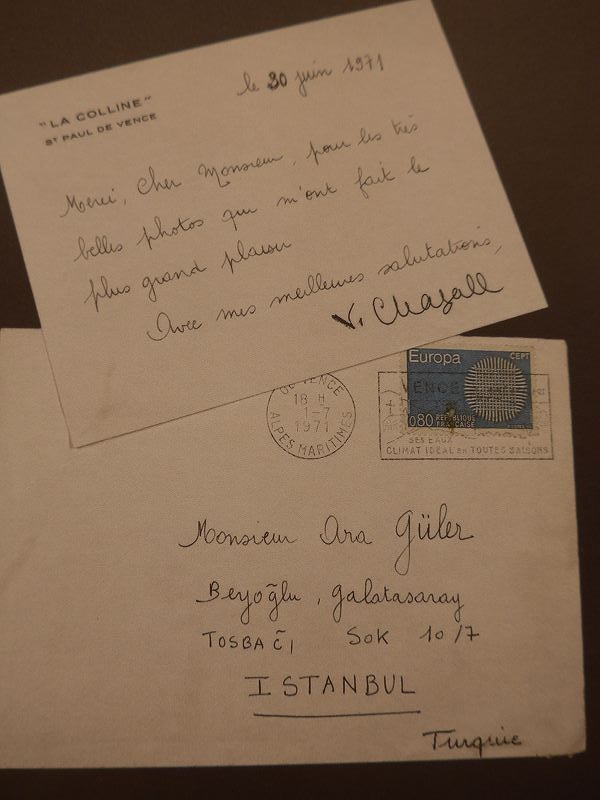 "LA COLLINE"
ST PAUL DE VENCE
le 30 juin 1971
Merci, Cher Monsieur, pour les très
belles photos qui m'ont fait le
plus grand plaisir
Avec mes meilleures salutations,
V. Chagall
Europa
CEPT
0,80 RÉPUBLIQUE
FRANÇAISE
VENCE
18 H
1-7
1971
ALPES MARITIMES
VENCE
SES EAUX
CLIMAT IDÉAL EN TOUTES SAISONS
Monsieur Ara Güler
Beyoğlu, Galatasaray
TOSBAĞI SOK 10/7
ISTANBUL
Turquie